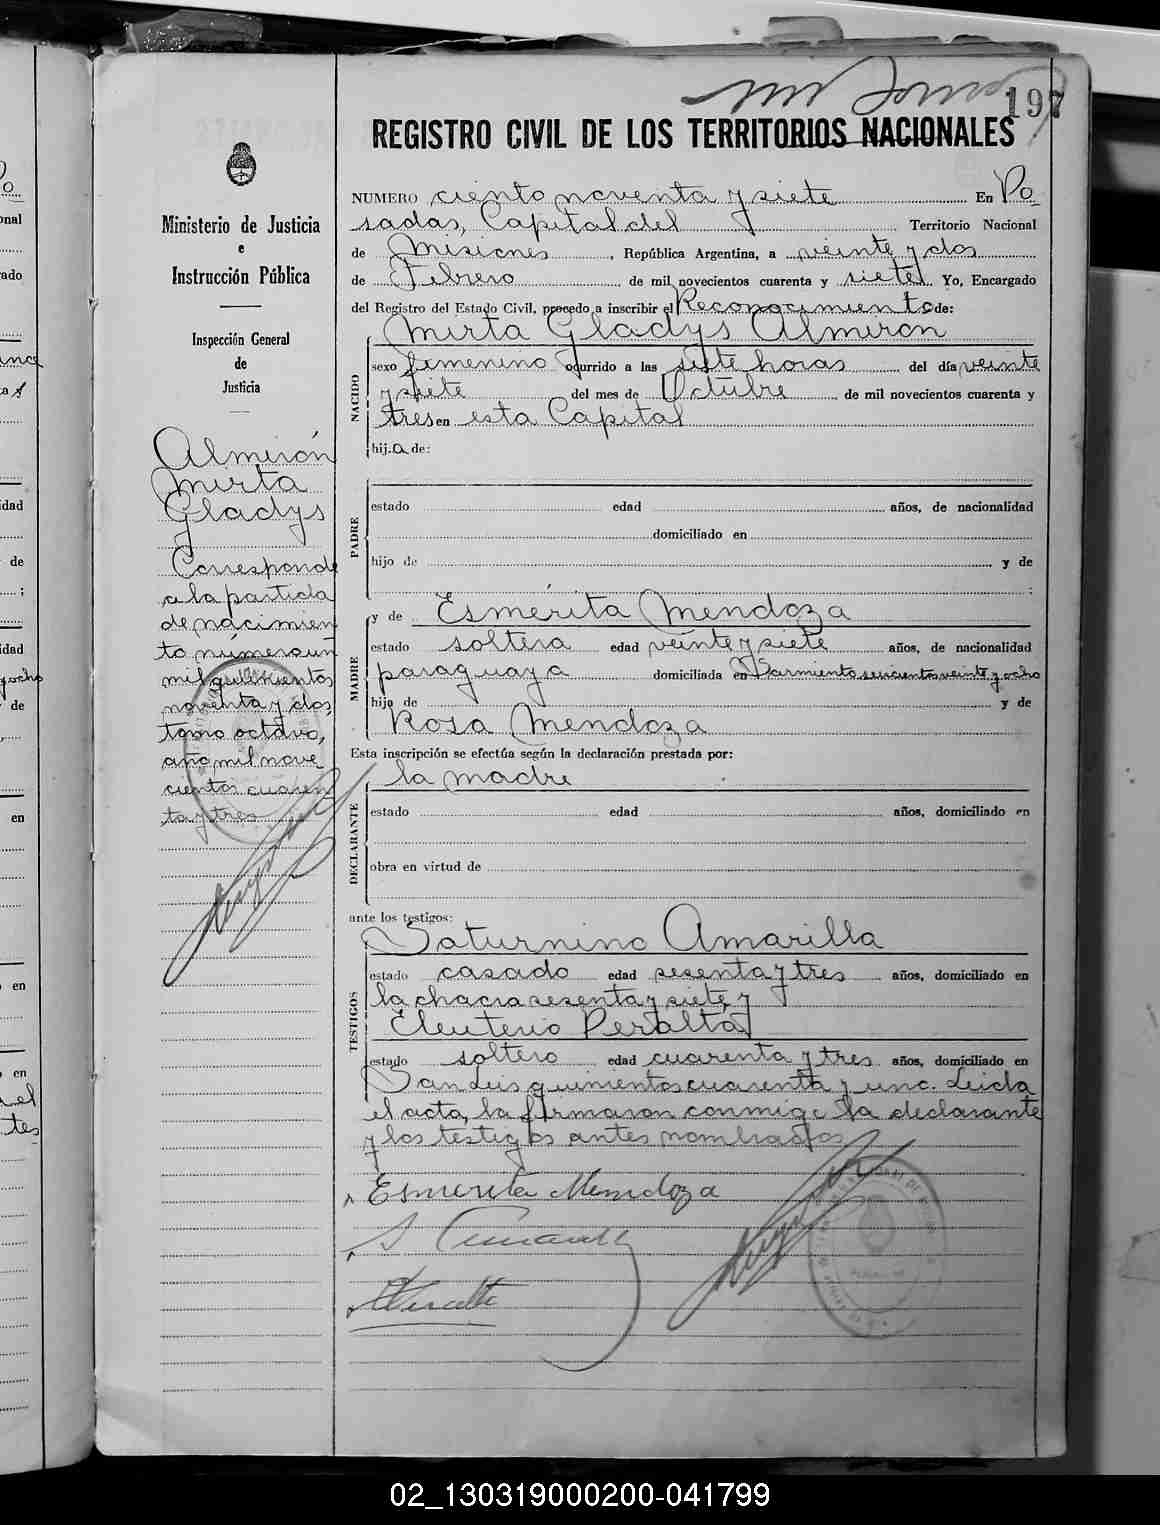 197
REGISTRO CIVIL DE LOS TERRITORIOS NACIONALES
NUMERO ciento noventa y siete En Po
sadas, Capital del Territorio Nacional
de Misiones, República Argentina, a veinte y dos
de Febrero de mil novecientos cuarenta y siete Yo, Encargado
del Registro del Estado Civil, procedo a inscribir el Reconocimiento de:
Mirta Gladys Almiron
NACIDO
sexo femenino ocurrido a las siete horas del día veinte
y siete del mes de Octubre de mil novecientos cuarenta y
tres en esta Capital
hija de:
PADRE
estado edad años, de nacionalidad
domiciliado en
hijo de y de
;
MADRE
y de Esmérita Mendoza
estado soltera edad veinte y siete años, de nacionalidad
paraguaya domiciliada en Sarmiento seiscientos veinte y ocho
hijo de y de
Rosa Mendoza
Esta inscripción se efectúa según la declaración prestada por:
la madre
DECLARANTE
estado edad años, domiciliado en
obra en virtud de
ante los testigos:
TESTIGOS
Saturnino Amarilla
estado casado edad sesenta y tres años, domiciliado en
la chacra sesenta y siete, y
Eleuterio Peralta
estado soltero edad cuarenta y tres años, domiciliado en
San Luis quinientos cuarenta y uno. Leida
el acta, la firmaron conmigo la declarante
y los testigos antes nombrados
Esmerita Mendoza
S Amarilla
Peralta
Ministerio de Justicia
e
Instrucción Pública
Inspección General
de
Justicia
Almirón
Mirta
Gladys
Corresponde
a la partida
de nacimien
to número un
mil quinientos
noventa y dos,
tomo octavo,
año mil nove
cientos cuaren
ta y tres
02_130319000200-041799